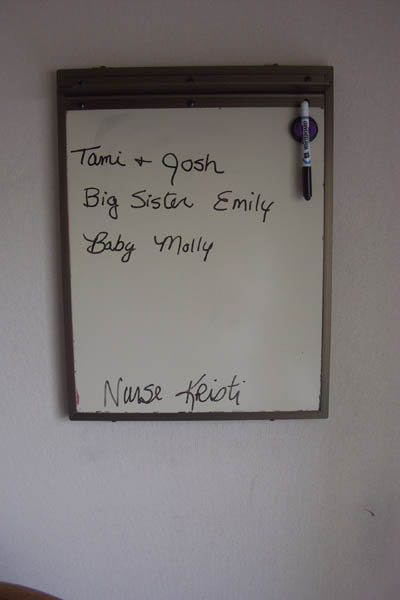 Tami + Josh
Big Sister Emily
Baby Molly
Nurse Kristi